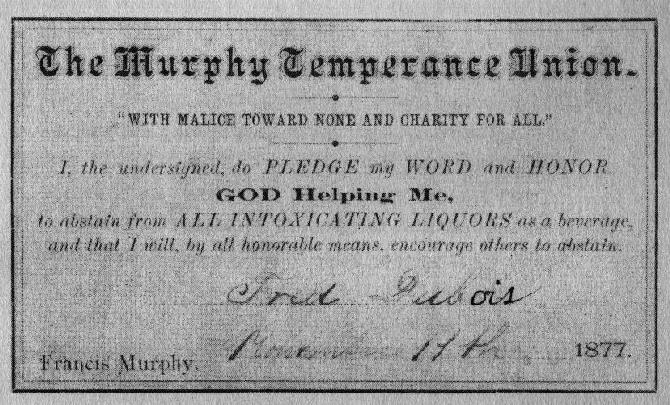 The Murphy Temperance Union.
"WITH MALICE TOWARD NONE AND CHARITY FOR ALL."
I, the undersigned, do PLEDGE my WORD and HONOR
GOD Helping Me,
to abstain from ALL INTOXICATING LIQUORS as a beverage,
and that I will, by all honorable means, encourage others to abstain.
Fred Dubois
Francis Murphy. November 17th 1877.